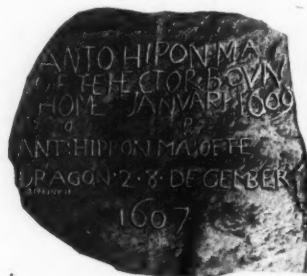 ANTO HIPON MA
OF TE HECTOR BOVN
HOME JANVARI 1609
ANT: HIPPON MA OF TE
DRAGON · 2 · 8 · DECEMBER
1607